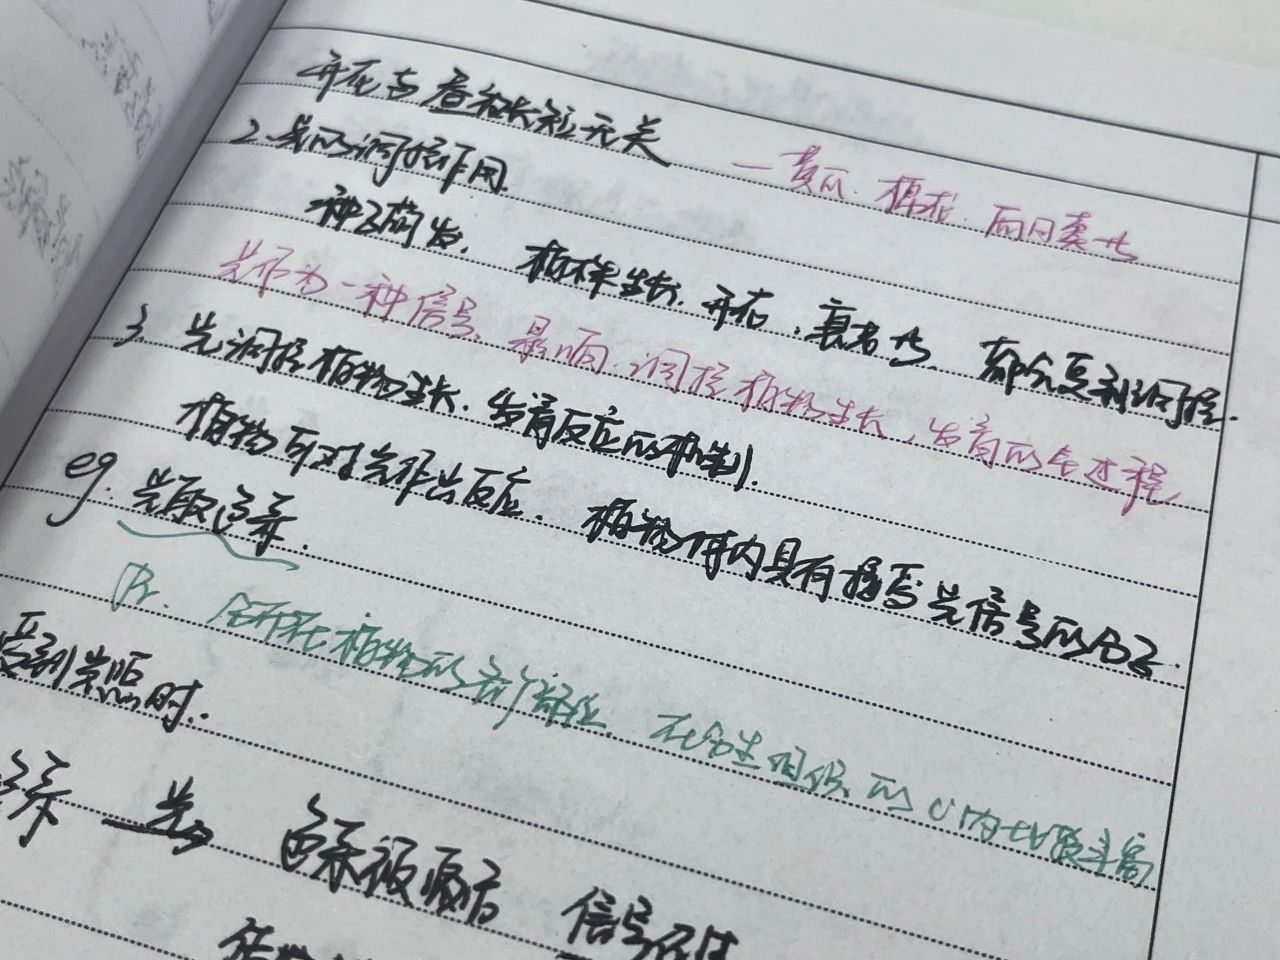 开花与昼夜长短无关 —黄瓜、棉花、向日葵等
2. 光的调控作用.
种子萌发、植株生长、开花、衰老等、都会受到调控.
光作为一种信号、影响、调控植物生长、发育的全过程
3. 光调控植物生长、发育反应的机制.
植物可对光作出反应、植物体内具有接受光信号的分子.
eg. 光敏色素.
Pr. 分布在植物的各个部位、在分生组织的 内 较丰富
受到光照时.
色素 光 色素被激活 信号